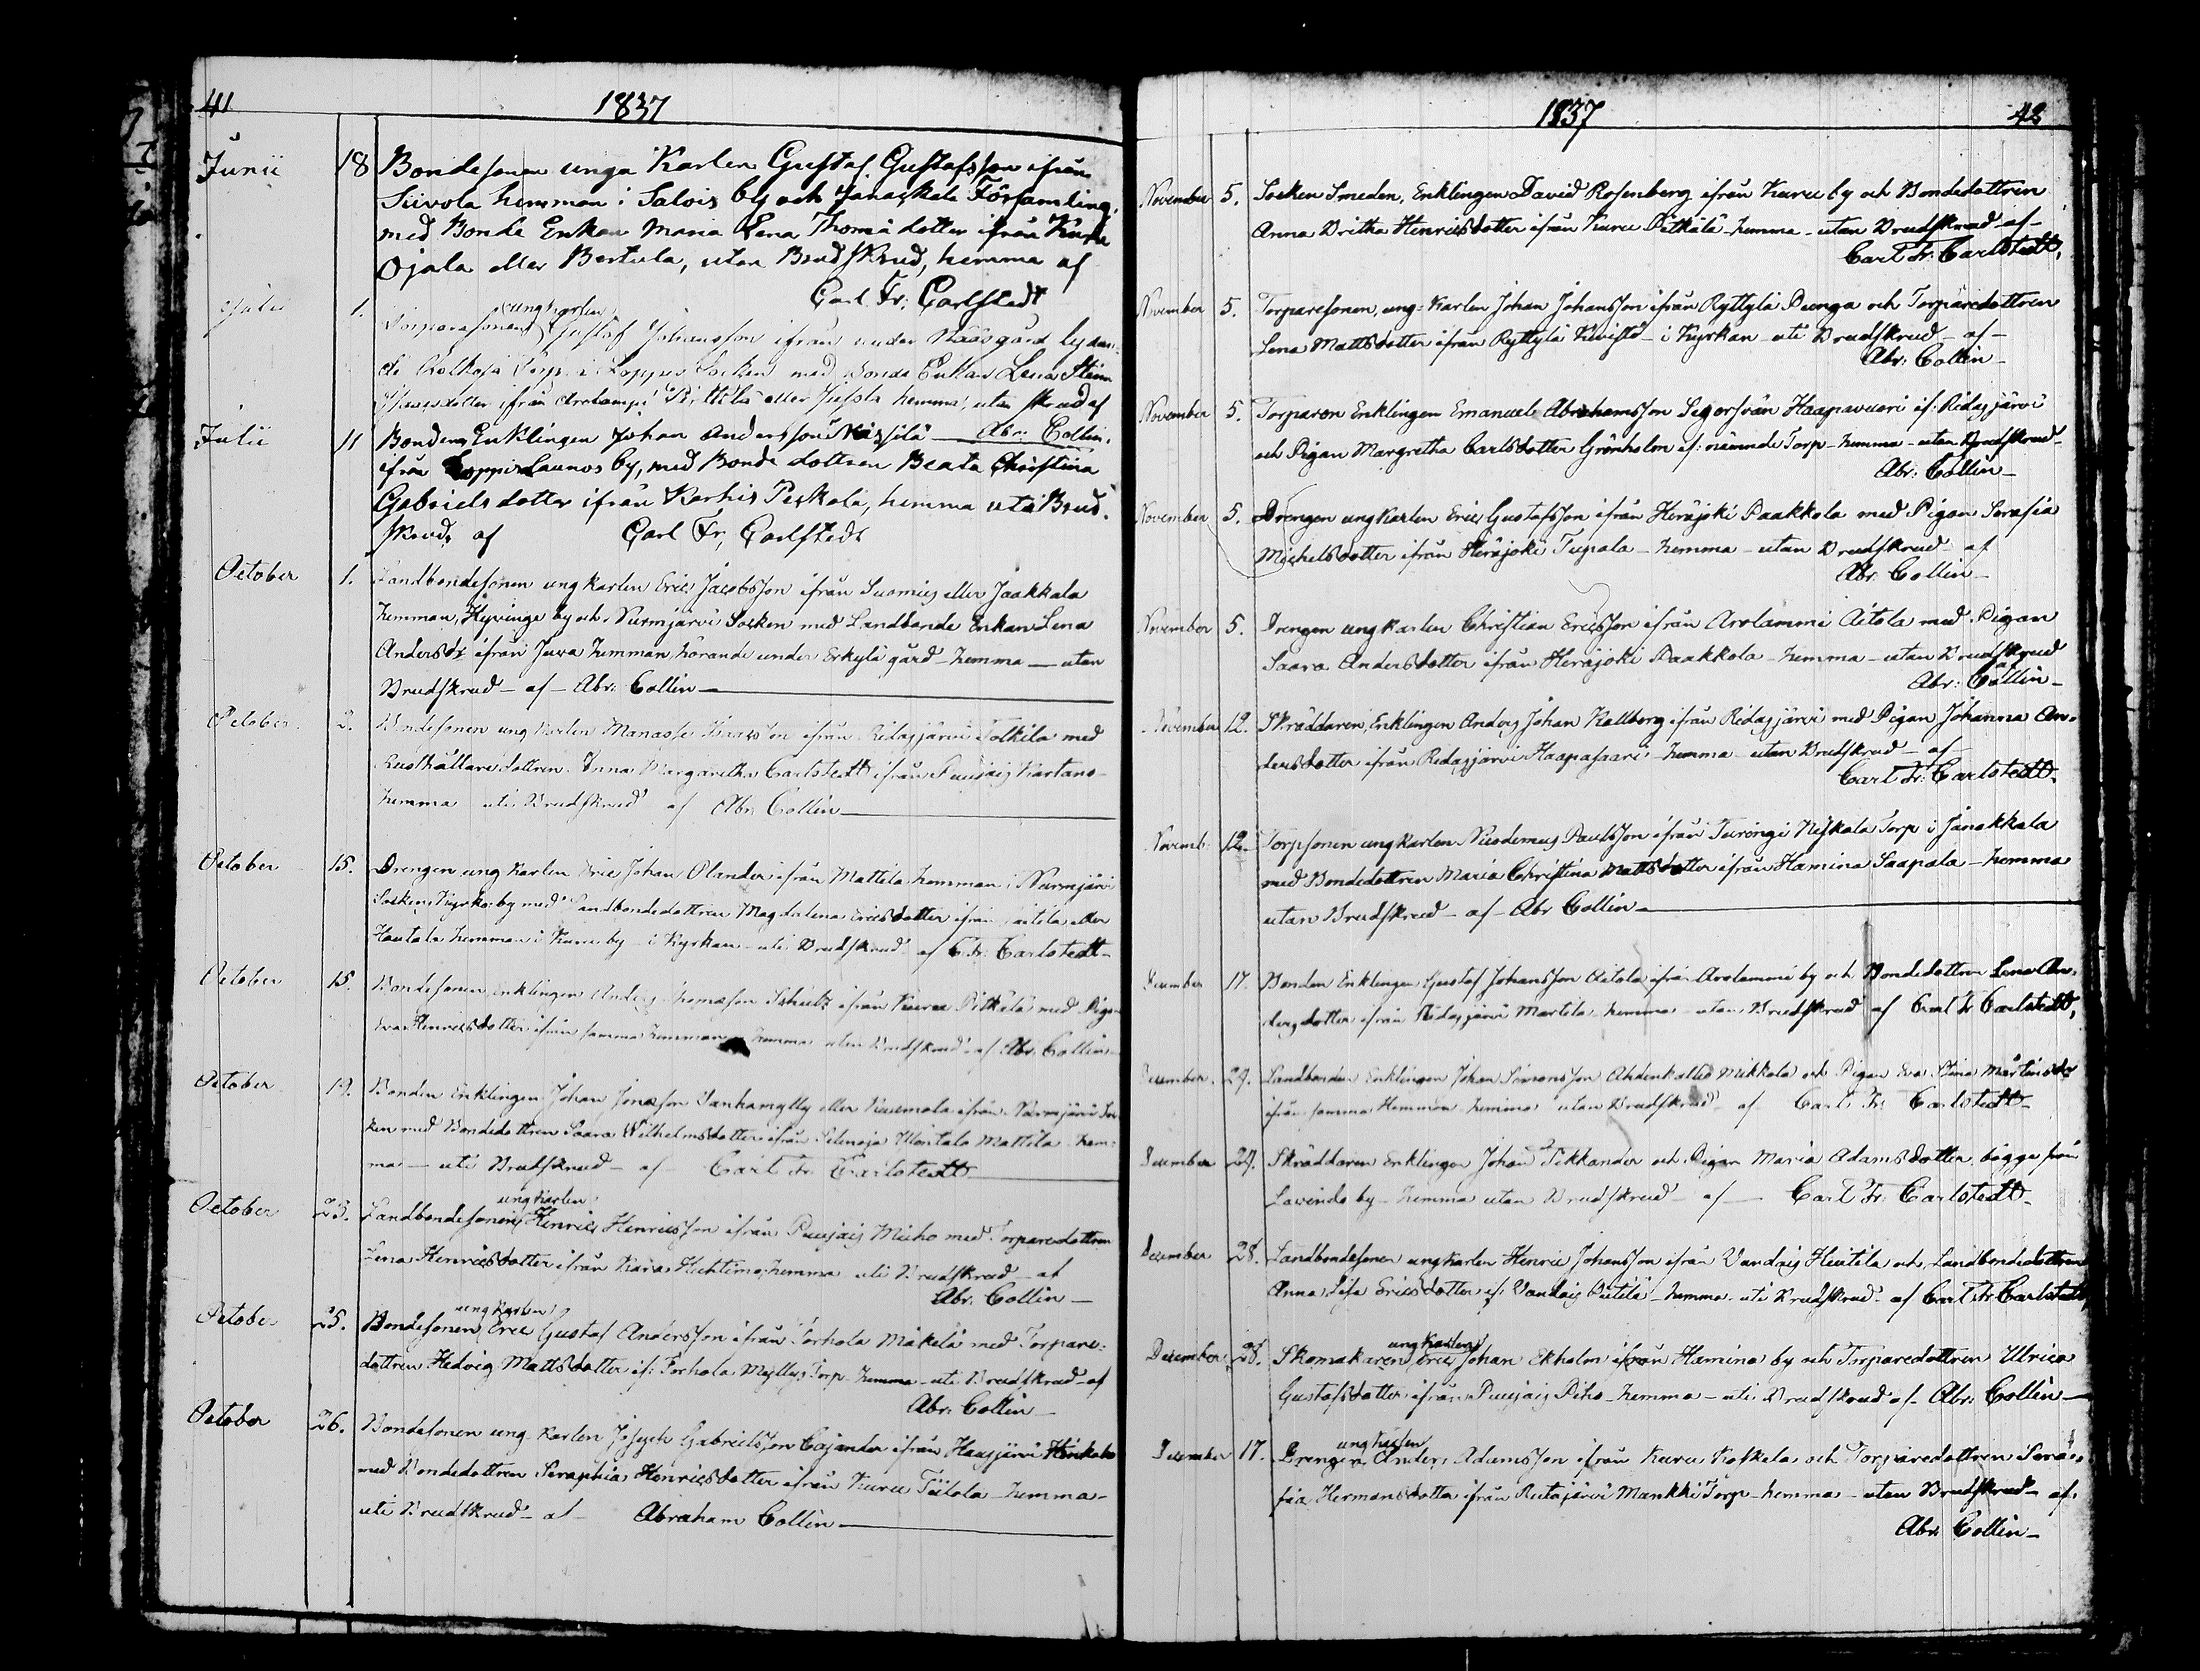 41
1837
Junii 18 Bondesonen unga Karlen Gustaf Gustafsson ifrån
Siivola hemman i Salois by och Janackala Församling,
med Bonde Enkan Maria Lena Thomædotter ifrån Kuru
Ojala eller Bertula, utan Brudskrud, hemma af
Carl Fr: Carlstedt
ungkarlen
Julii 1. Torparesonen Gustaf Johansson ifrån under gård lydan-
de Torp i Loppis Socken med Bonde Enkan Lena Stina
dotter ifrån Arolampi Pirttilä eller hemma, utan skrud af
Abr: Collin.
Julii 11 Bonden Enklingen Johan Andersson
ifrån Loppis Launos by, med Bonde dottren Beata Christina
Gabrielsdotter ifrån Karhis Peskala, hemma uti Brud-
skrud, af Carl Fr, Carlstedt
October 1. Landbondesonen ungkarlen Eric Jacobsson ifrån Suomis eller Jaakkala
hemman, Hyvinge by och Nurmjärvi Socken med Landbonde Enkan Lena
Andersdr ifrån Juva hemman, hörande under Erkylä gård - hemma - utan
Brudskrud - af - Abr: Collin -
October 2. Bondesonen ung karlen Manasse Isaacsson ifrån Ridasjärvi Tolkila med
Rusthållaredottren Anna Margaretha Carlstedt ifrån Puujais Kartano-
hemma uti Brudskrud af Abr: Collin -
October 15. Drengen ung karlen Eric Johan Olander ifrån Mattila hemman i Nurmjärvi
Socken, Kyrkoby med Landbondedottren Magdalena Ericsdotter ifrån eller
Hautala hemman i Kuru by - i Kyrkan - uti Brudskrud - af C. Fr: Carlstedt -
October 15. Bondesonen, Enklingen Anders Thomasson Schultz ifrån Kuru Pitkälä med Pigan
Eva Henricsdotter ifrån samma hemman - hemma utan Brudskrud - af Abr: Collin -
October 19. Bonden Enklingen Johan Jonasson Sanhamylly eller ifrån Nurmjärvi Soc-
ken med Bondedottren Saara Wilhelmsdotter ifrån Selinoja Mattila hem-
ma - uti Brudskrud - af - Carl Fr Carlstedt
ungkarlen
October 23. Landbondesonen Henric Henricsson ifrån Puujais Micho med Torparedottren
Lena Henricsdotter ifrån Kara Huhtimo, hemma uti Brudskrud - af
Abr: Collin -
ungkarlen
October 25. Bondesonen Eric Gustaf Andersson ifrån Torhola Mäkelä med Torpare-
dottren Hedvig Mattsdotter if: Torhola Myllys Torp - hemma - uti Brudskrud - af
Abr: Collin -
October 26. Bondesonen ung karlen Joseph Gabrielsson Cajander ifrån Hausjärvi
med Bondedottren Seraphia Henricsdotter ifrån Kuru Tiitola - hemma -
uti Brudskrud - af - Abraham Collin -
1837
42
November 5. Socken Smeden, Enklingen David Rosenberg ifrån Kuru by och Bondedottren
Anna Britha Henricsdotter ifrån Kuru Pitkälä - hemma - utan Brudskrud - af -
Carl Fr: Carlstedt,
November 5. Torparesonen, ung-karlen Johan Johansson ifrån Ryttylä Punga och Torparedottren
Lena Mattsdotter ifrån Ryttylä Kivistö - i Kyrkan uti Brudskrud - af -
Abr: Collin -
November 5. Torparen Enklingen Emanuel Abrahamsson Segersvän Haapavuori if: Ridasjärvi
och Pigan Margretha Carlsdotter Grönholm af: nämnde Torp - hemma - utan Brudskrud -
Abr: Collin -
November 5. Drengen ungkarlen Eric Gustafsson ifrån Herajoki Paakkola med Pigan Serafia
Michelsdotter ifrån Herajoki Tupala - hemma - utan Brudskrud - af
Abr: Collin -
November 5. Drengen ungkarlen Christian Ericsson ifrån Arolammi Aitola med Pigan
Saara Andersdotter ifrån Herajoki Paakkola - hemma - utan Brudskrud
af
Abr: Collin -
November 12. Skräddaren, Enklingen Anders Johan Kallberg ifrån Ridasjärvi med Pigan Johanna An-
dersdotter ifrån Ridasjärvi Haapasaari - hemma utan Brudskrud - af -
Carl Fr: Carlstedt.
Novemb: 12. Torpsonen ungkarlen Nicodemus Paulsson ifrån Turengi Niskala Torp i Janakkala
med Bondedottren Maria Christina Mattsdotter ifrån Hamina Saapala - hemma
utan Brudskrud - af - Abr Collin -
December 17. Bonden Enklingen Gustaf Johansson Aitola ifrån Arolammi by och Bondedottren Lena An-
dersdotter ifrån Ridasjärvi Martila hemma - utan Brudskrud af Carl Fr Carlstedt,
December 29. Landbonden Enklingen Johan Simonsson kallad Mikkola och Pigan Eva Stina Mårtensdr
ifrån samma Hemman hemma utan Brudskrud - af Carl Fr Carlstedt -
December 29. Skräddaren Enklingen Johan Tikkander och Pigan Maria Adamsdotter bägge från
Lavinds by - hemma utan Brudskrud - af - Carl Fr: Carlstedt -
December 28. Landbondesonen ungkarlen Henric Johansson ifrån Vandais Heutilä och Landbondedottren
Anna Lisa Ericsdotter if: Vandais - hemma - uti Brudskrud - af Carl Fr Carlstedt
ungkarlen
December 28. Skomakaren Eric Johan Ekholm ifrån Hamina by och Torparedottren Ulrica
Gustafsdotter ifrån Puujais Piho - hemma - uti Brudskrud af - Abr: Collin -
ungkarlen
December 17. Drengen Anders Adamsson ifrån Kuru Koskela och Torparedottren Sera-
fia Hermansdotter ifrån Ridasjärvi Mankki Torp - hemma - utan Brudskrud - af.
Abr: Collin -